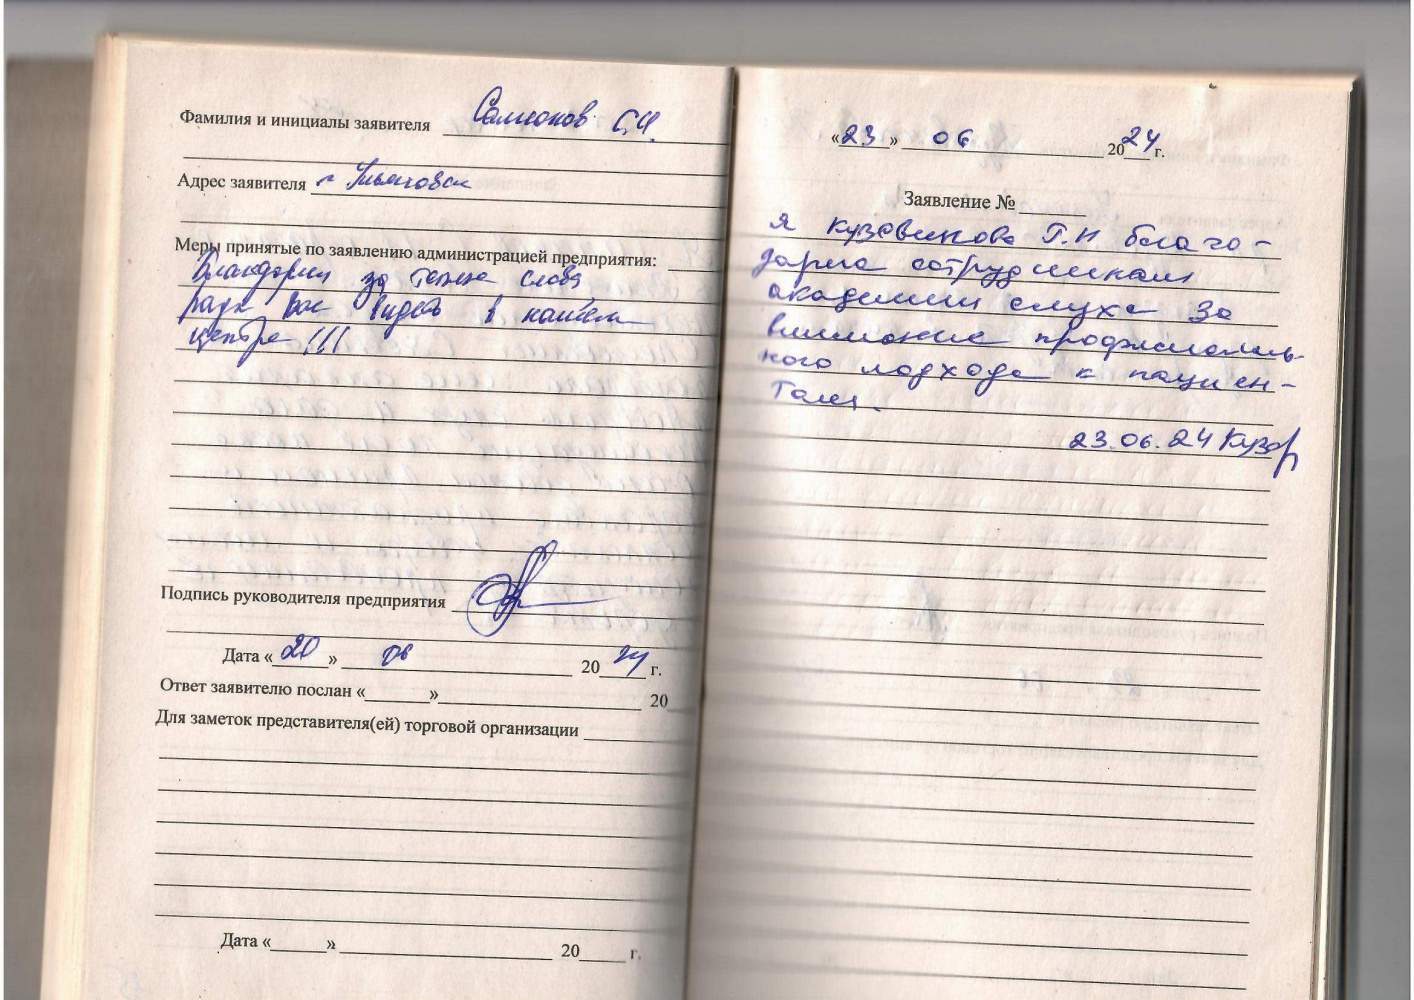 Фамилия и инициалы заявителя Самсонов С.Ч.
Адрес заявителя г. Ульяновск
Меры принятые по заявлению администрацией предприятия:
Благодарим за теплые слова,
рады Вас видеть в нашем
центре !!!
Подпись руководителя предприятия
Дата «20» 06 2024 г.
Ответ заявителю послан «  » 20
Для заметок представителя(ей) торговой организации
Дата «  » 20 г.
«23» 06 2024 г.
Заявление №
Я Кузовенкова Г.Н благо-
дарю сотрудникам
академии слуха за
внимание профессиональ-
ного подхода к пациен-
там.
23.06.24 Кузов